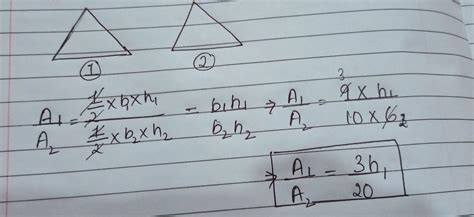 ① ②
A₁/A₂ = (1/2 × b₁ × h₁)/(1/2 × b₂ × h₂) = b₁h₁/b₂h₂ ⇒ A₁/A₂ = (9 3 × h₁)/(10 × 6 2)
⇒ A₁/A₂ = 3h₁/20